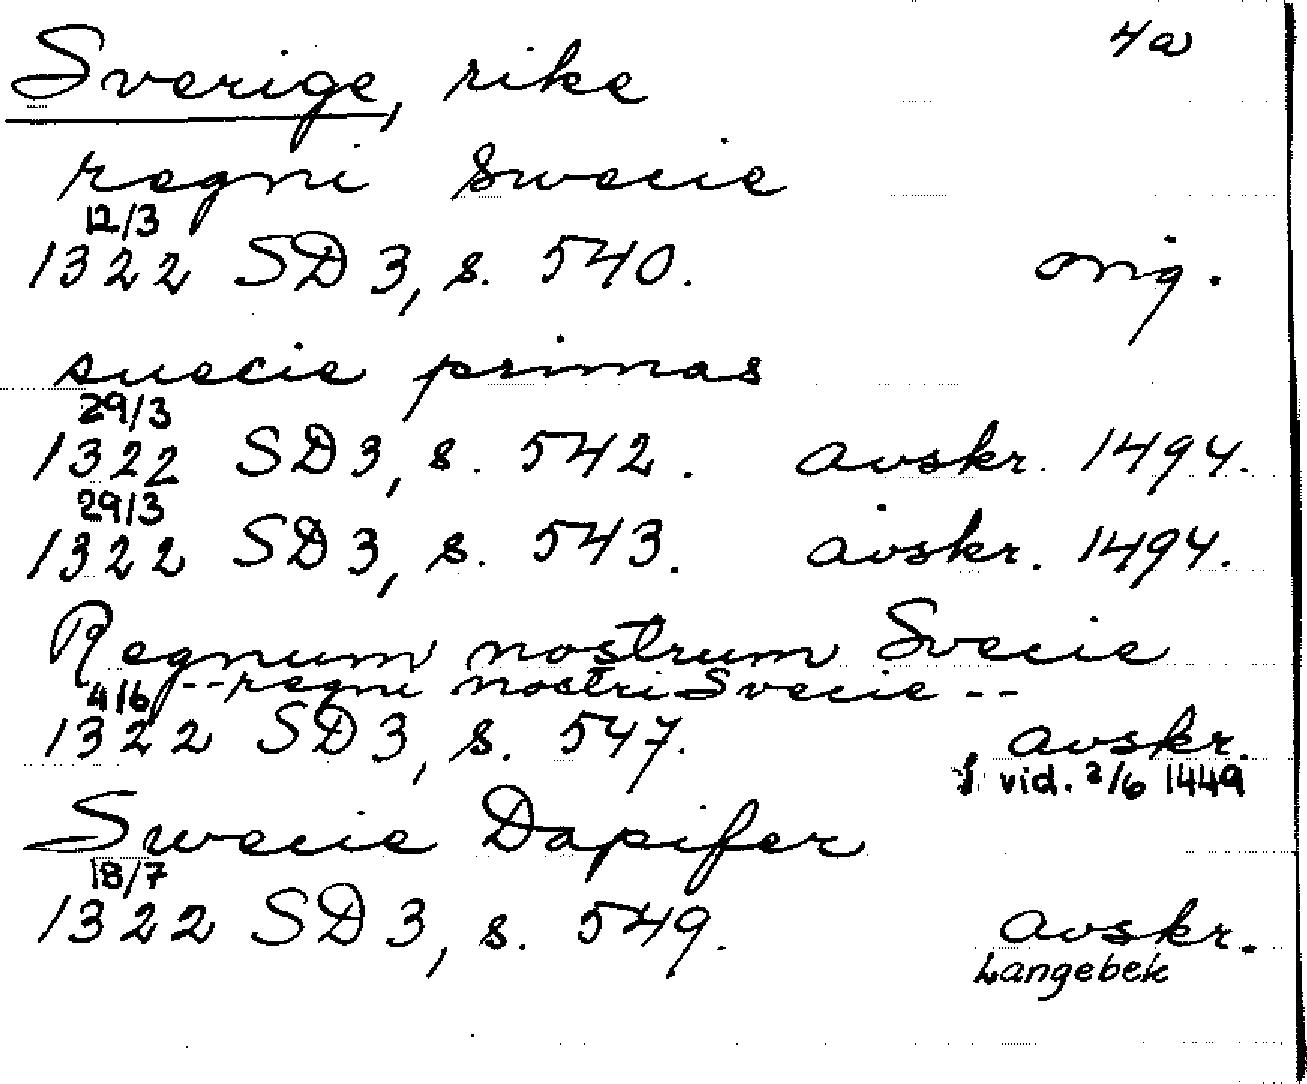 4a
Sverige, rike
regni Swecie
12/3
1322 SD 3, s. 540. orig.
suecie primas
29/3
1322 SD 3, s. 542. avskr. 1494.
29/3
1322 SD 3, s. 543. avskr. 1494.
Regnum nostrum Svecie
--regni nostri Svecie --
4/6
1322 SD 3, s. 547. avskr.
i vid. 2/6 1449
Swecie Dapifer
18/7
1322 SD 3, s. 549. avskr.
Langebek